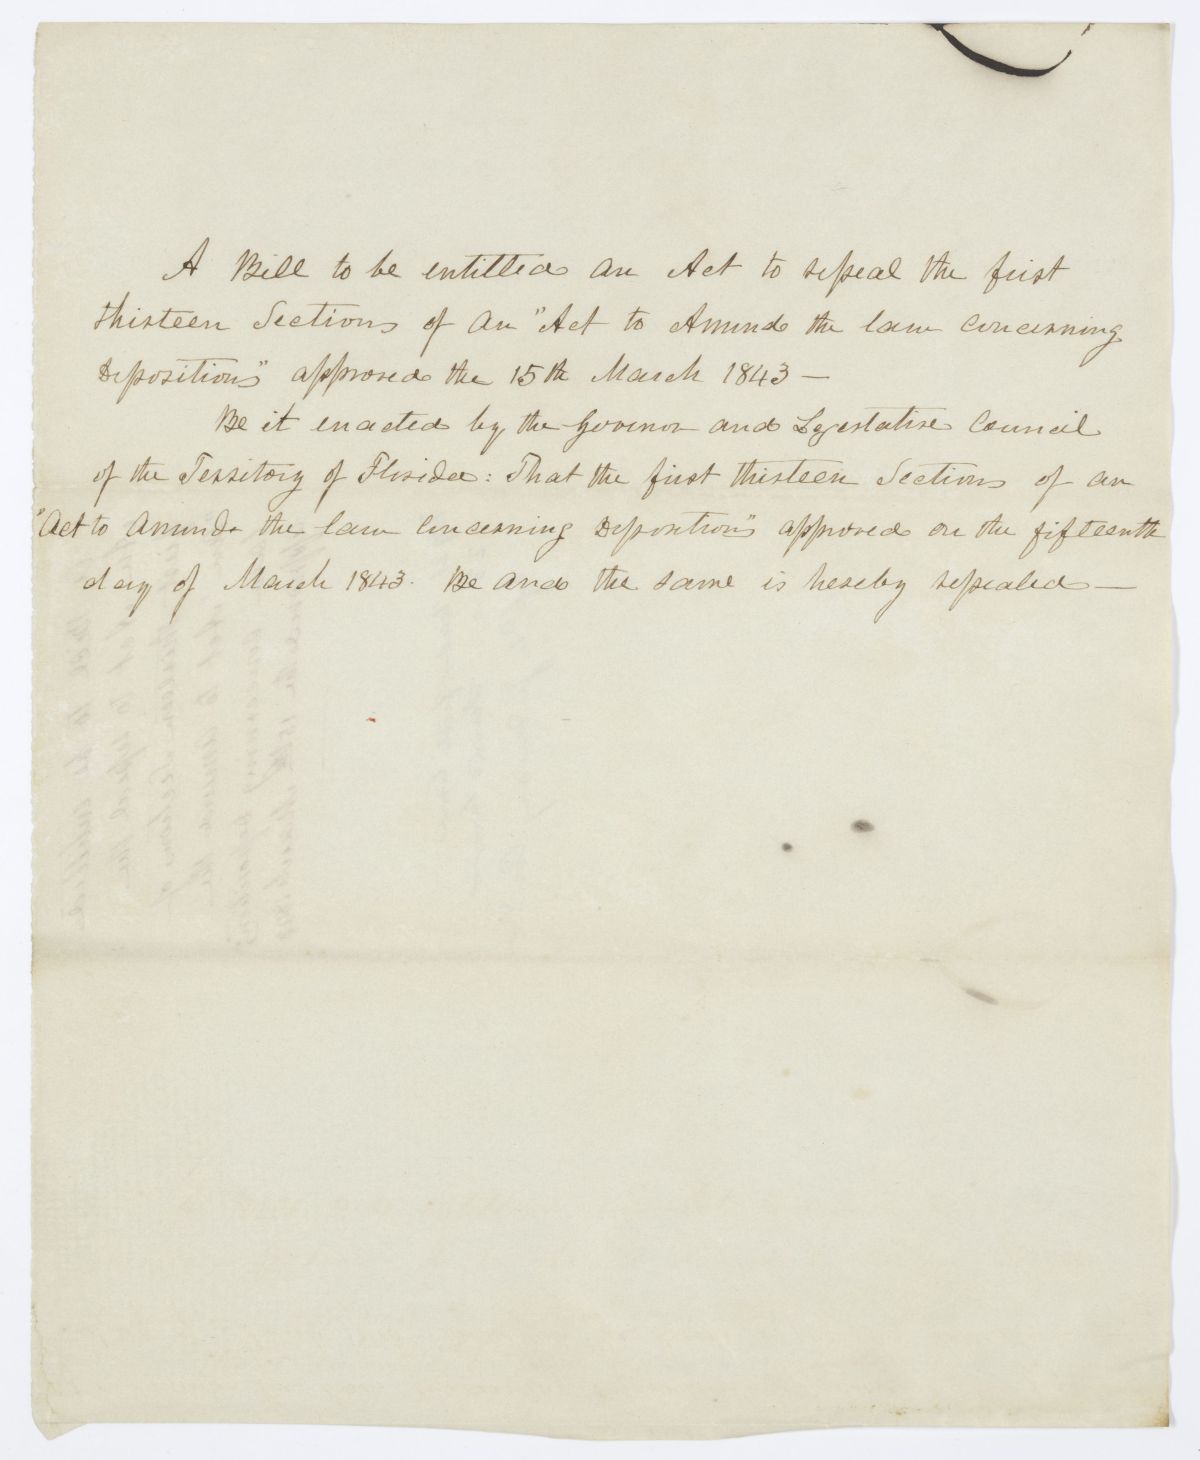 A Bill to be entitled an Act to repeal the first
thirteen Sections of an "Act to Amend the law concerning
Depositions" approved the 15th March 1843 —
Be it enacted by the Govenor and Legestative Council
of the Territory of Florida: That the first thirteen Sections of an
"Act to Amend the law concerning Depositions" approved on the fifteenth
day of March 1843. Be and the same is hereby repealed —